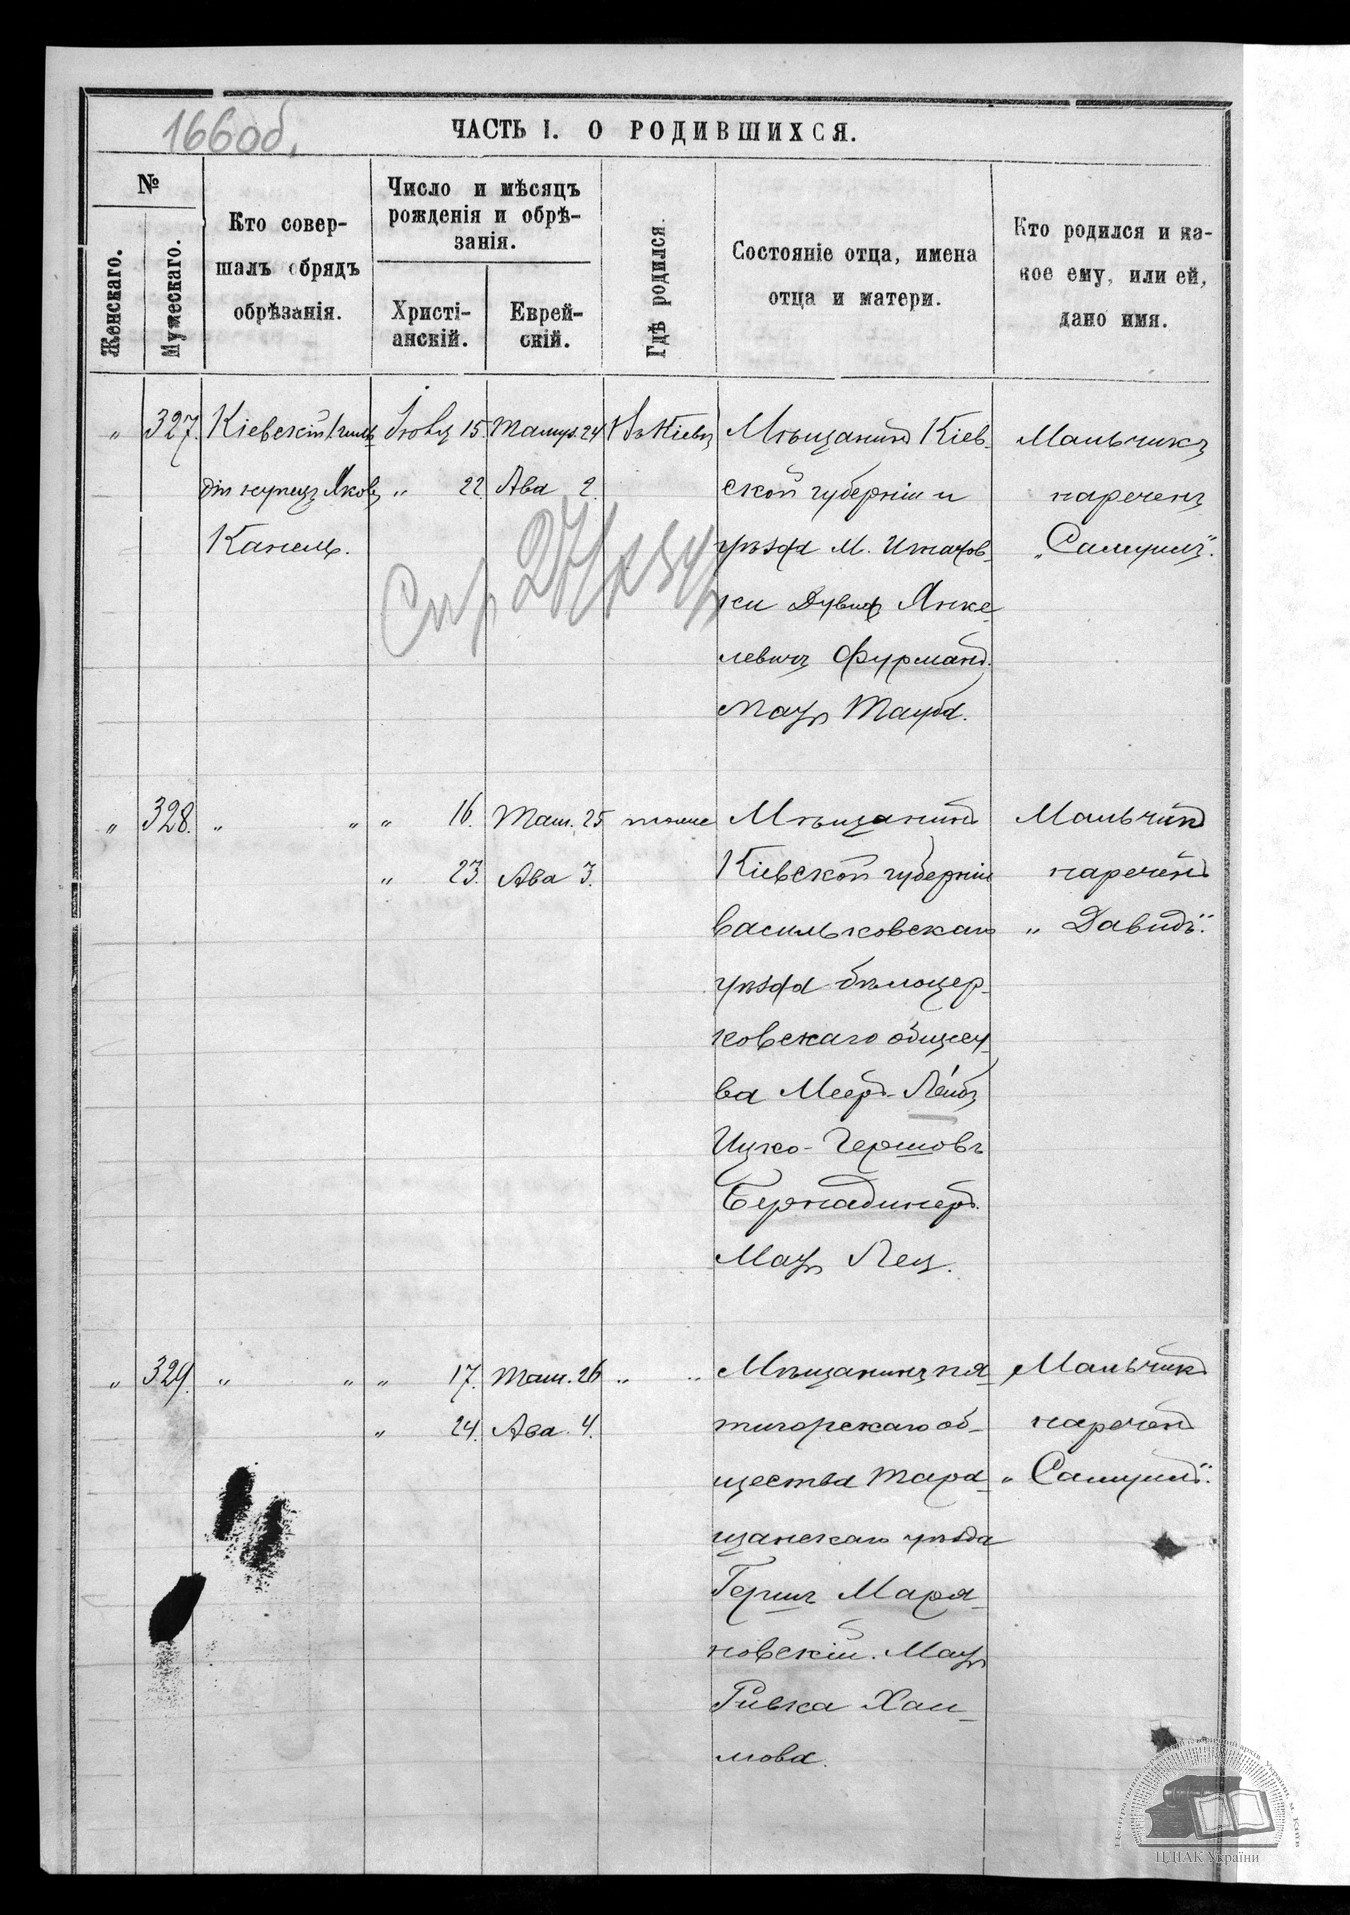 166об.
ЧАСТЬ I. О РОДИВШИХСЯ.
№
Женскаго.
Мужескаго.
Кто совер-
шалъ обрядъ
обрѣзанія.
Число и мѣсяцъ
рожденія и обрѣ-
занія.
Христі-
анскій.
Еврей-
скій.
Гдѣ родился.
Состояніе отца, имена
отца и матери.
Кто родился и ка-
кое ему, или ей,
дано имя.
" 327. Кіевскій 1 гиль-
діи купецъ Яковъ
Канель.
Іюля 15. Тамуз. 24
" 22 Ава 2.
Въ Кіевѣ
Мѣщанинъ Кіев-
ской губерніи и
уѣзда М.
ки Дувидъ Янке-
левичъ Фурманъ.
Мать Тауба.
Мальчикъ
нареченъ
„Самуилъ".
Стр
" 328. " " " 16. Там. 25 тоже
" 23. Ава 3.
Мѣщанинъ
Кіевской губерніи
Васильковскаго
уѣзда бѣлоцер-
ковскаго общест-
ва Меер-Лейбъ
Ицко-Гершовъ
Бернадинеръ.
Мать Лея.
Мальчикъ
нареченъ
„ Давидъ".
" 329. " " " 17. Там. 26 " "
" 24. Ава 4.
Мѣщанинъ пя-
тигорскаго об-
щества Тара-
щанскаго уѣзда
Гершъ Маря-
новскій. Мать
Ривка Хаи-
мова.
Мальчикъ
нареченъ
„ Самуилъ".
Центральний державний історичний архів України, м. Київ
ЦДІАК України